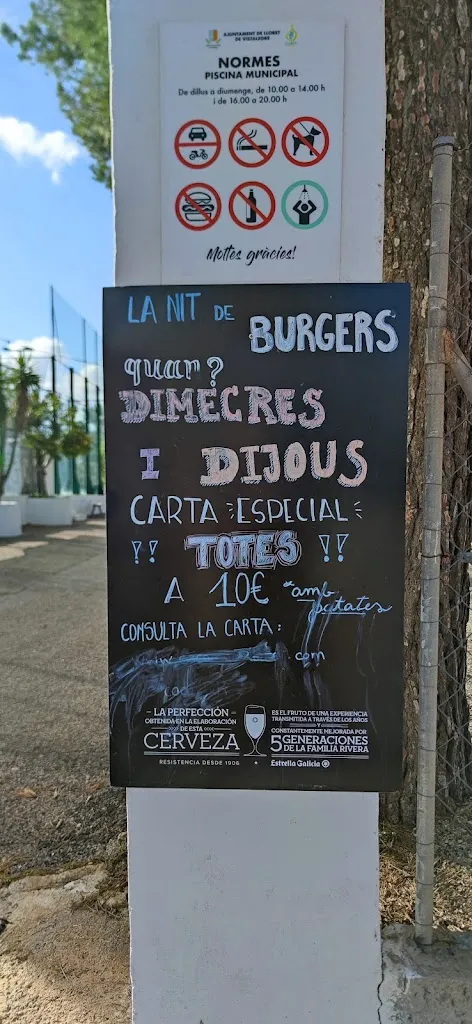 AJUNTAMENT DE LLORET
DE VISTALEGRE
NORMES
PISCINA MUNICIPAL
De dilluns a diumenge, de 10.00 a 14.00 h
i de 16.00 a 20.00 h
Moltes gràcies!
LA NIT DE BURGERS
quan?
DIMECRES
I DIJOUS
CARTA ESPECIAL
!! TOTES !!
A 10€ *amb patates
CONSULTA LA CARTA:
com
LA PERFECCIÓN
OBTENIDA EN LA ELABORACIÓN
DE ESTA
CERVEZA
RESISTENCIA DESDE 1906
ES EL FRUTO DE UNA EXPERIENCIA
TRANSMITIDA A TRAVÉS DE LOS AÑOS
Y
CONSTANTEMENTE MEJORADA POR
5 GENERACIONES
DE LA FAMILIA RIVERA
Estrella Galicia